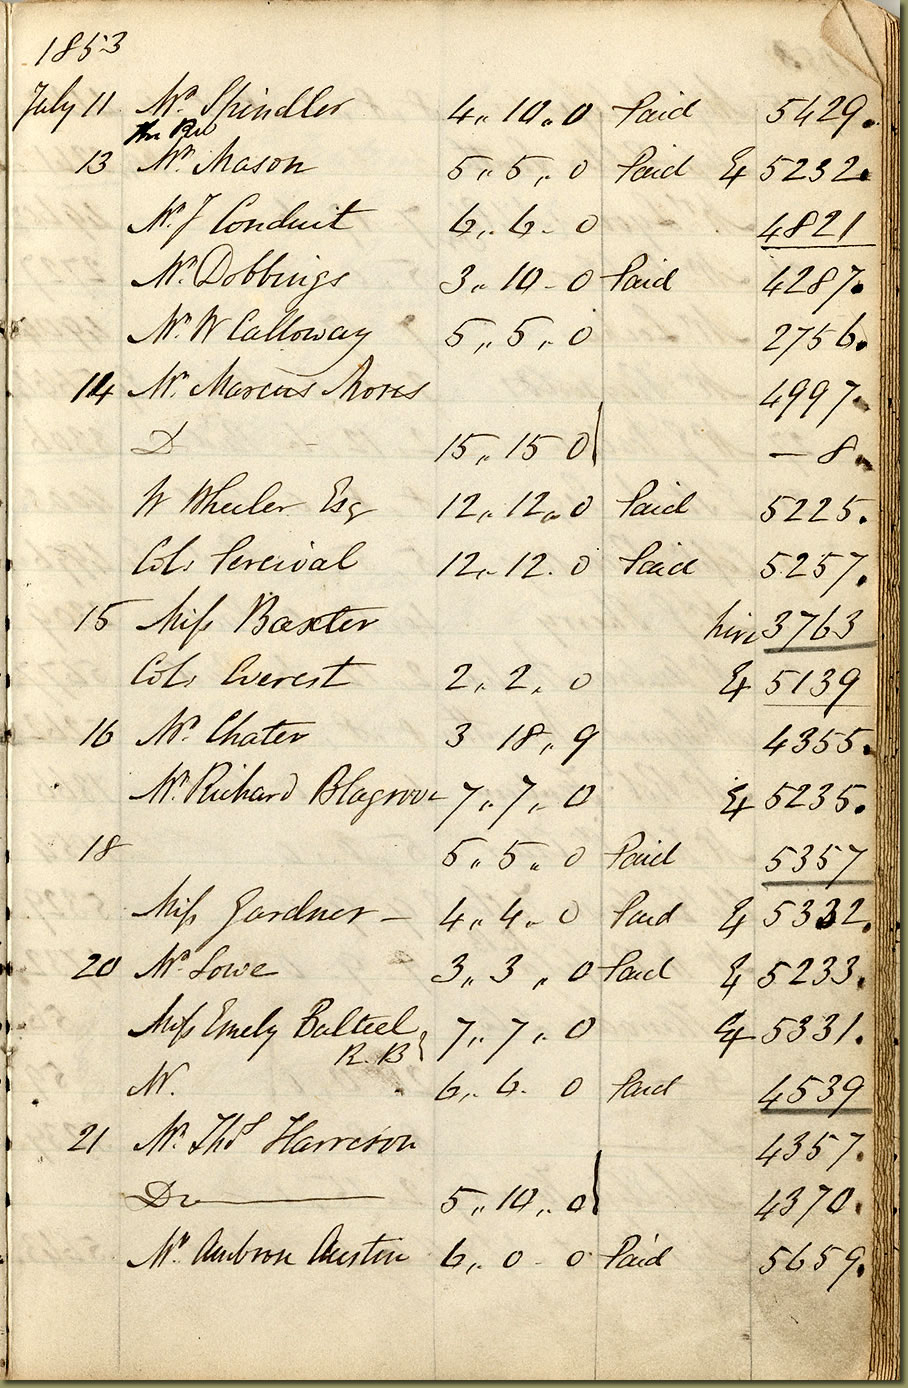 1853
July 11 Mr. Spindler 4,, 10,, 0 Paid 5429.
The Rev
13 Mr. Mason 5,, 5,, 0 Paid & 5232.
Mr. J Conduit 6,, 6 - 0 4821
Mr. Dobbings 3,, 10 - 0 Paid 4287.
Mr. W Calloway 5,, 5,, 0 2756.
14 Mr. Marcus 4997.
D - 15,, 15 0 — 8.
W Wheeler Esq 12,, 12,, 0 Paid 5225.
Col. Percival 12,, 12. 0 Paid 5257.
15 Miss Baxter hire 3763
Col. Everest 2,, 2,, 0 & 5139
16 Mr. Chater 3 18,, 9 4355.
Mr. Richard Blagrove 7,, 7,, 0 & 5235.
18 5,, 5,, 0 Paid 5357
Miss Gardner — 4,, 4,, 0 Paid & 5332.
20 Mr. Lowe 3,, 3,, 0 Paid & 5233.
Miss Emely Bulteel 7,, 7,, 0 & 5331.
R. B
M. 6,, 6. 0 Paid 4539
21 Mr. Thos Harrison 4357.
Do 5,, 10,, 0 4370.
Mr. Austin 6,, 0 - 0 Paid 5659.